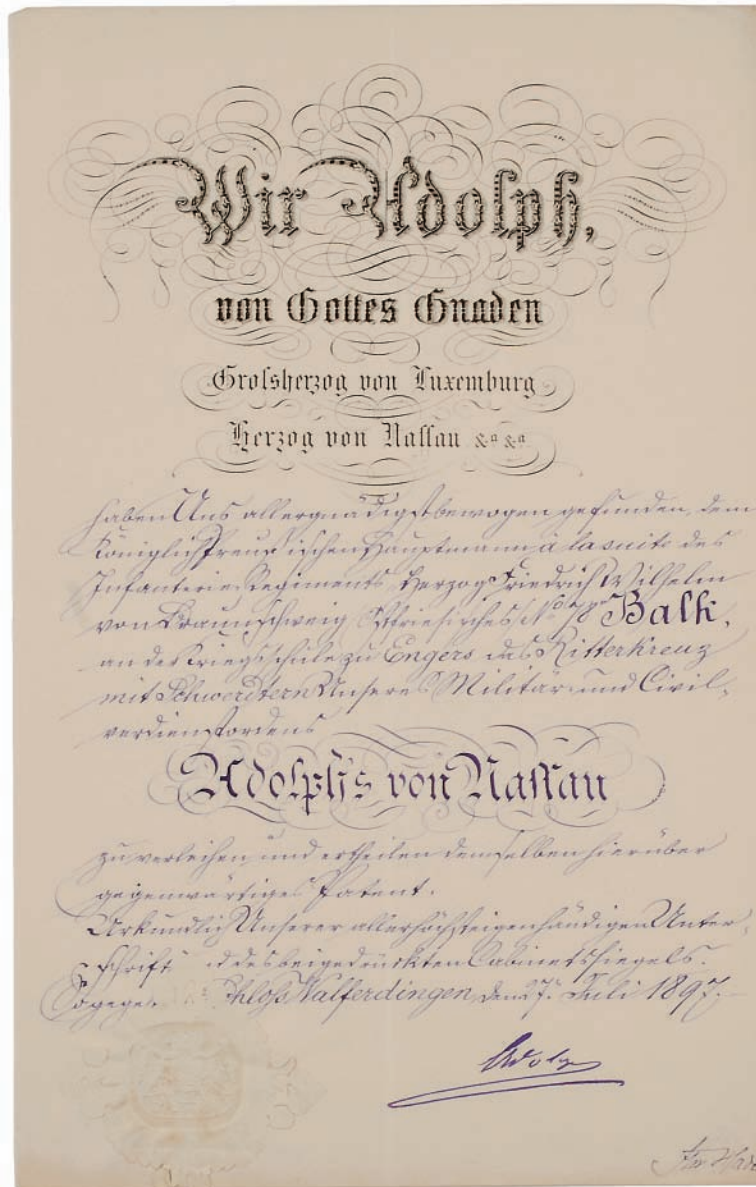 Wir Adolph,
von Gottes Gnaden
Großherzog von Luxemburg
Herzog von Nassau &a &a
haben Uns allergnädigst bewogen gefunden, dem
Königlich Preußischen Hauptmann à la suite des
Infanterie-Regiments Herzog Friedrich Wilhelm
von Braunschweig Ostfriesisches No 78 Balk,
an der Kriegsschule zu Engers das Ritterkreuz
mit Schwerdtern Unseres Militär- und Civil-
verdienstordens
Adolph's von Nassau
zu verleihen und ertheilen demselben hierüber
gegenwärtiges Patent.
Urkundlich Unserer allerhöchsteigenhändigen Unter-
schrift des beigedrückten Cabinetssiegels.
Schloß Walferdingen, den 27. Juli 1897.
Adolph